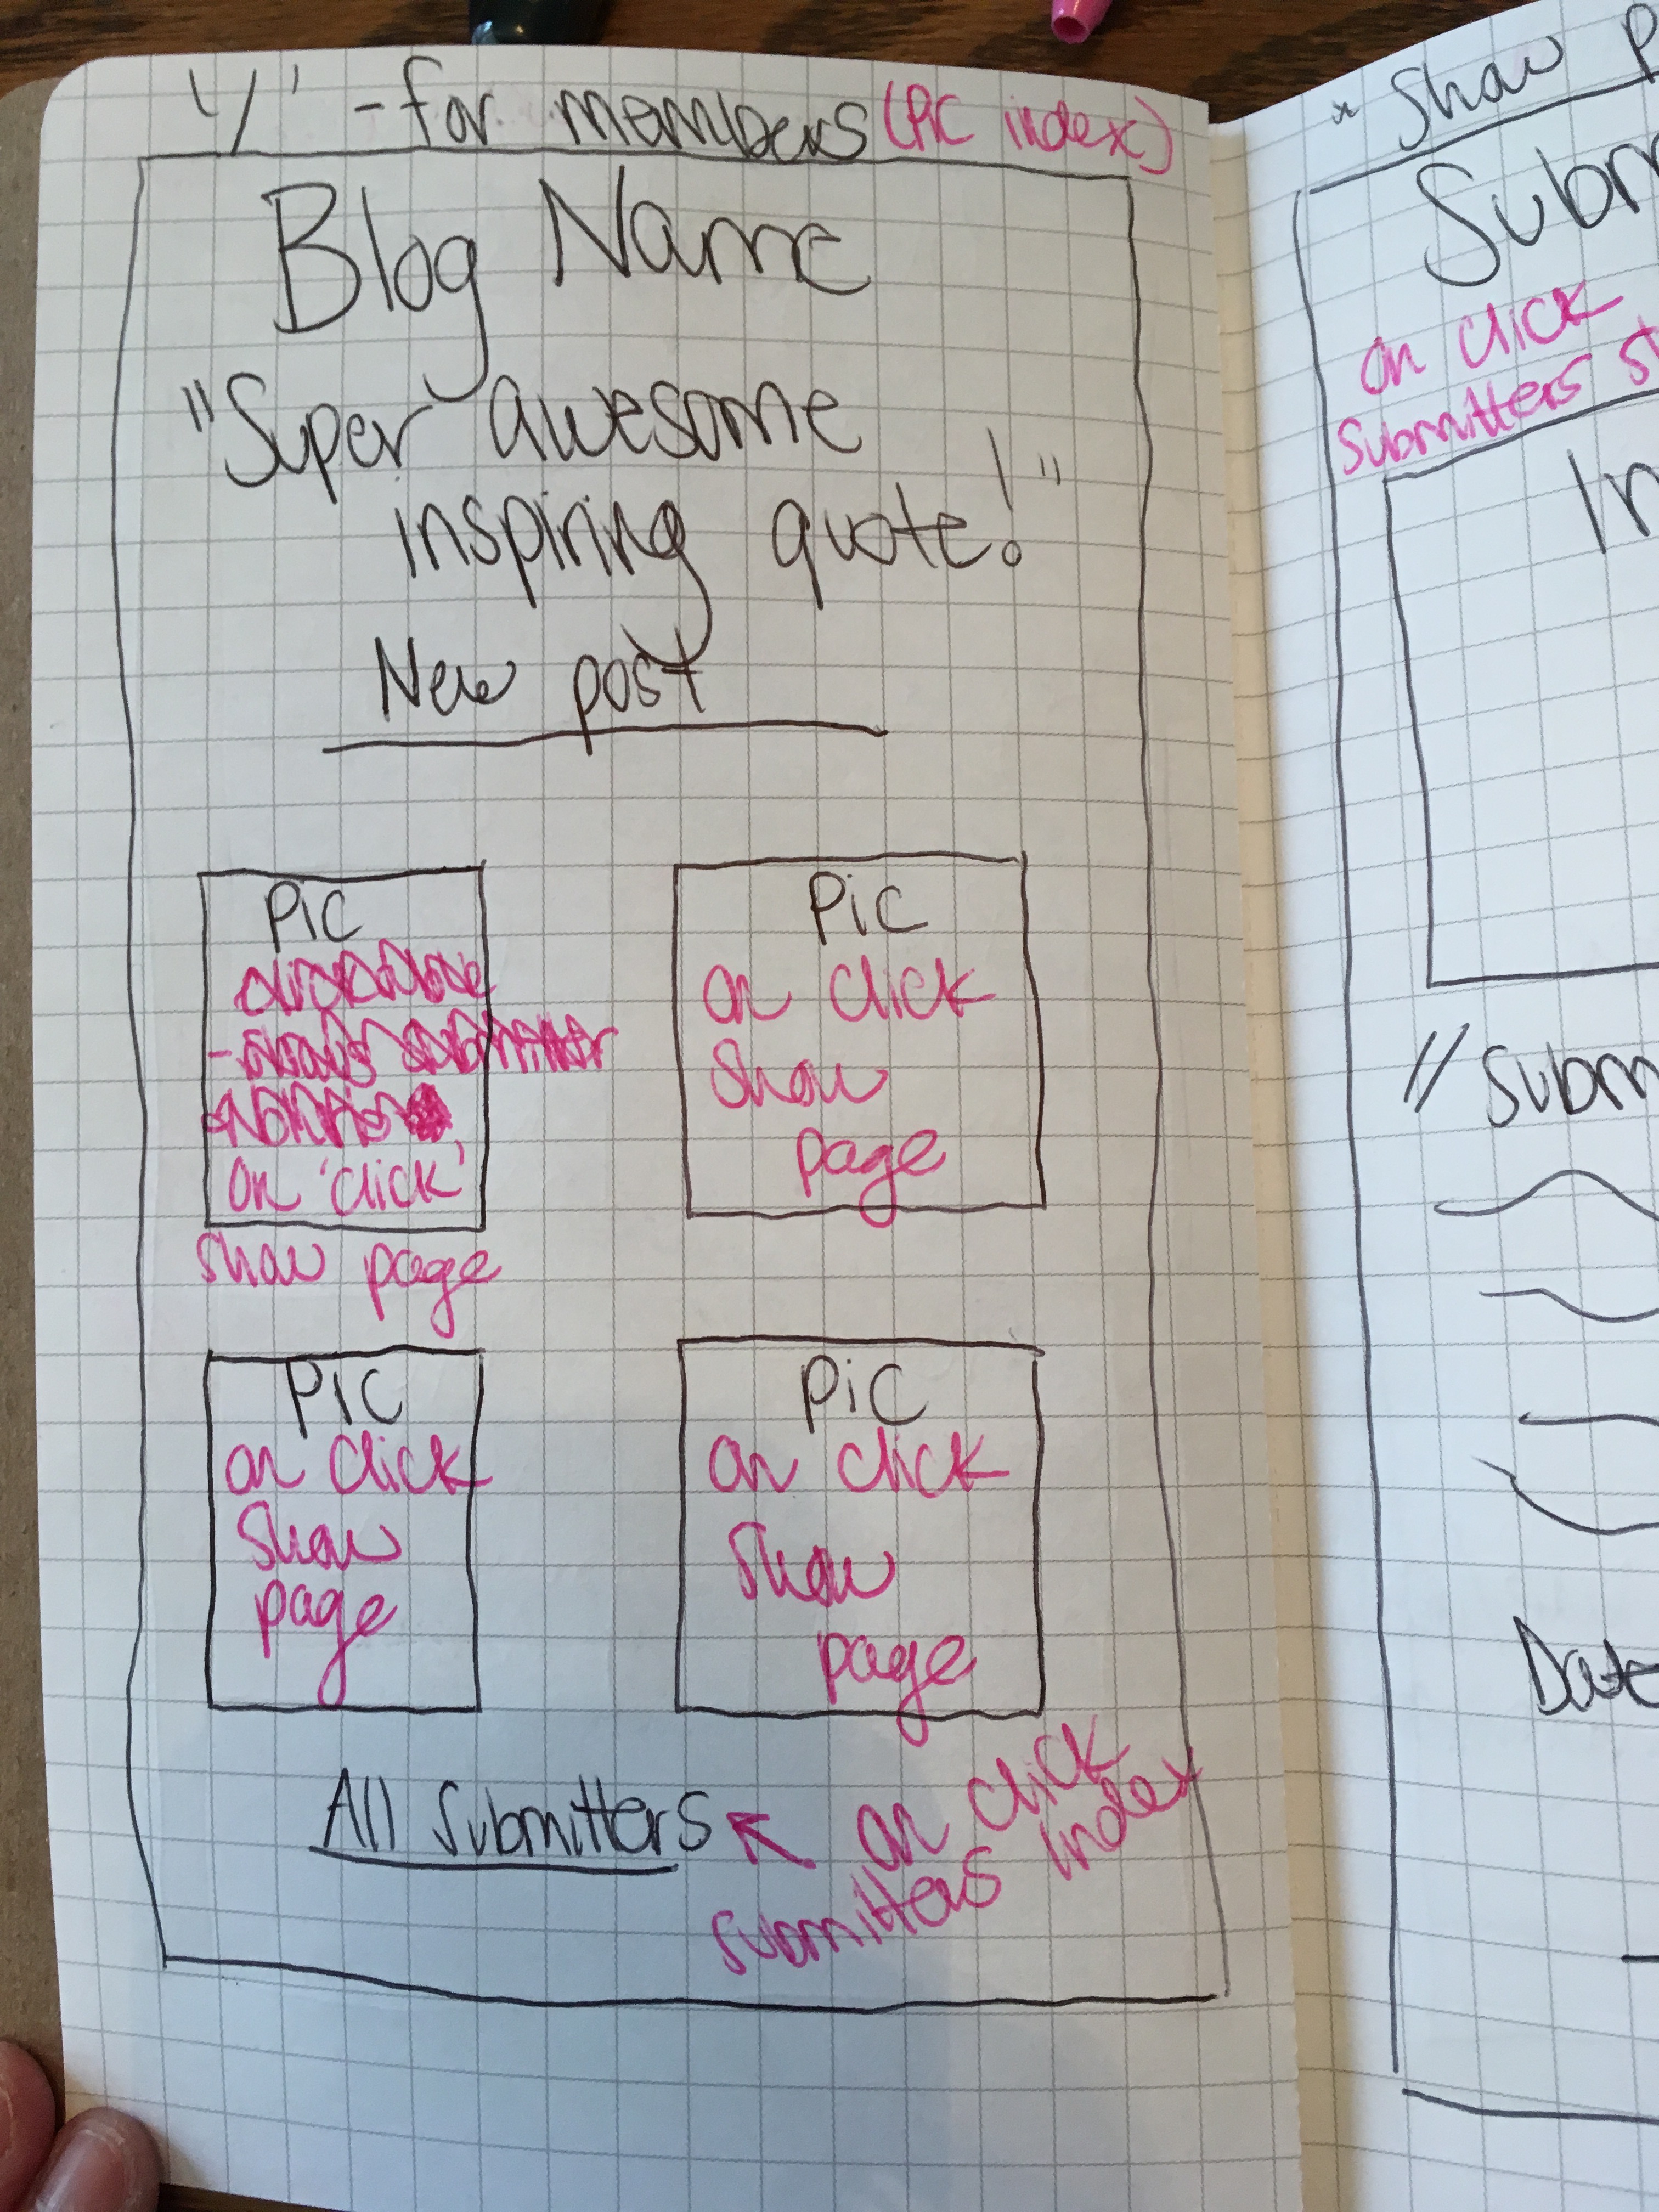 '/' - for members (Pic index)
Blog Name
"Super awesome
inspiring quote!"
New post
Pic
on 'click'
show page
Pic
on click
show
page
Pic
on click
show
page
Pic
on click
show
page
All Submitters
on click
submitters index
* Show
on click
submitters
Date